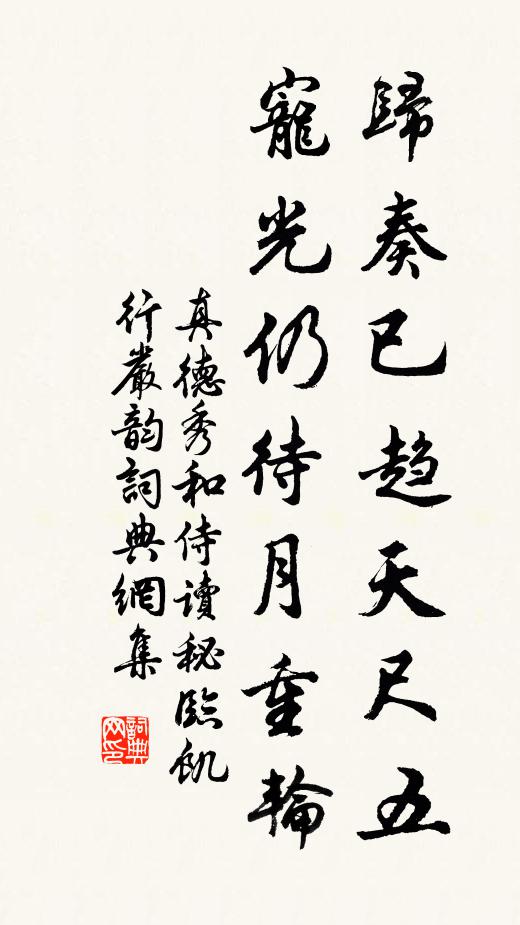 歸奏已趨天尺五
寵光仍待月重輪
真德秀和侍讀秘監飢
行嚴韵詞典網集
詞典网印